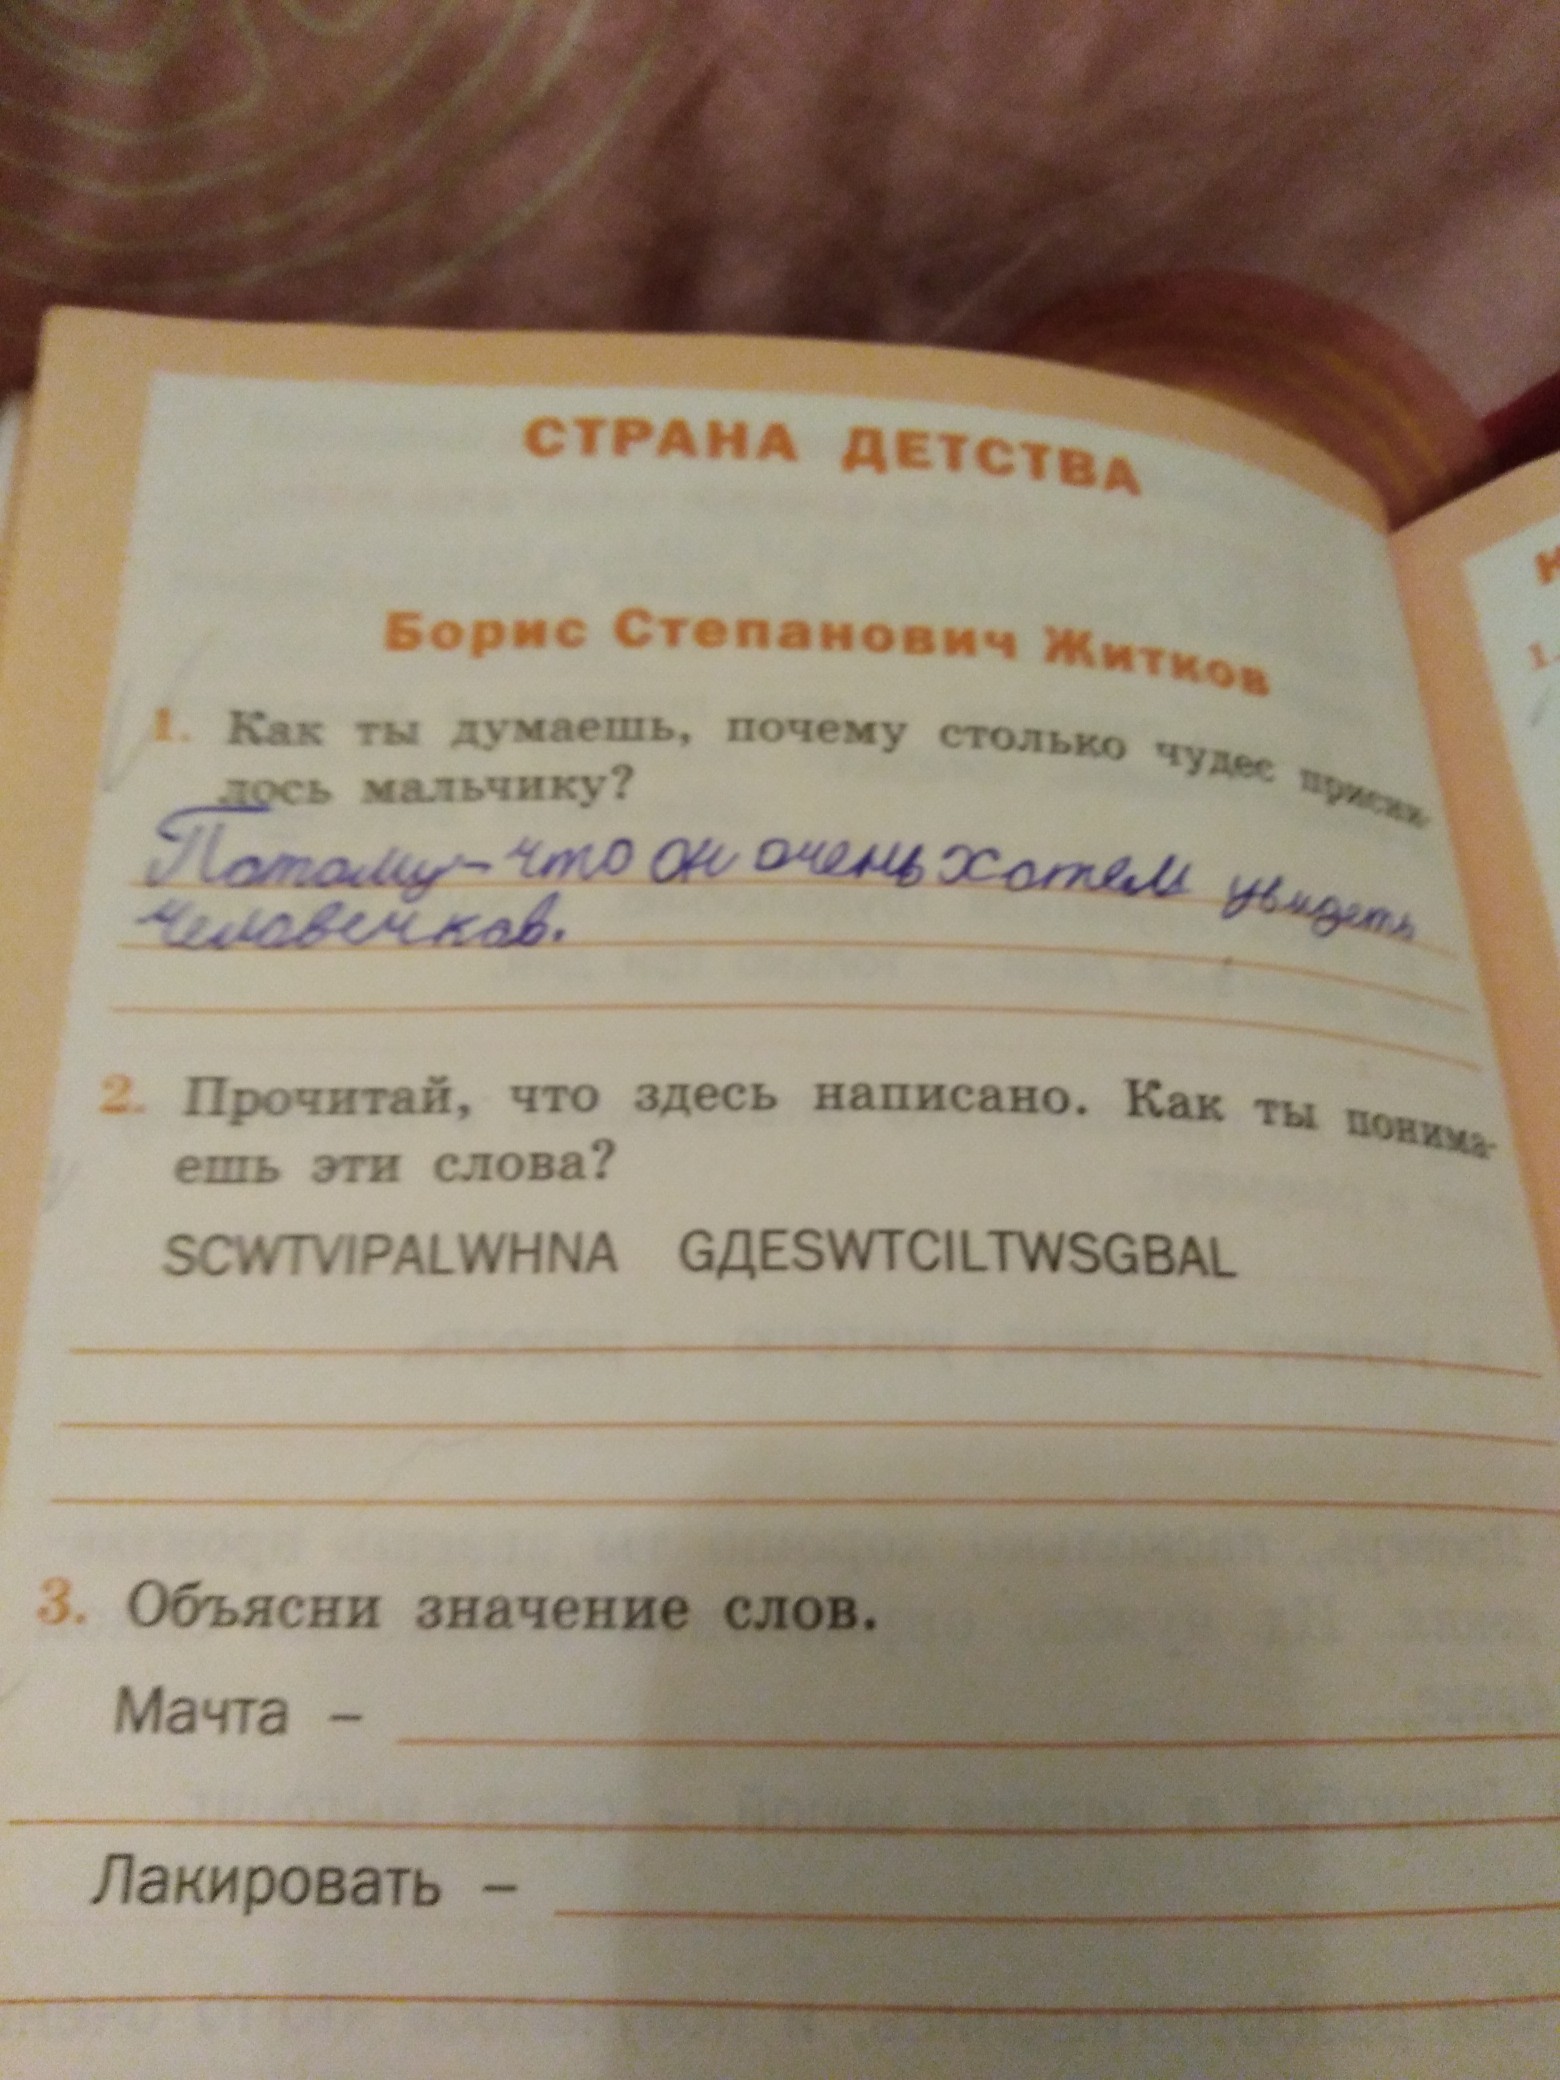 СТРАНА ДЕТСТВА
Борис Степанович Житков
1. Как ты думаешь, почему столько чудес присни-
лось мальчику?
Потому-что он очень хотел увидеть
человечков.
2. Прочитай, что здесь написано. Как ты понима-
ешь эти слова?
SCWTVIPALWHNA GДESWTCILTWSGBAL
3. Объясни значение слов.
Мачта –
Лакировать –
1.